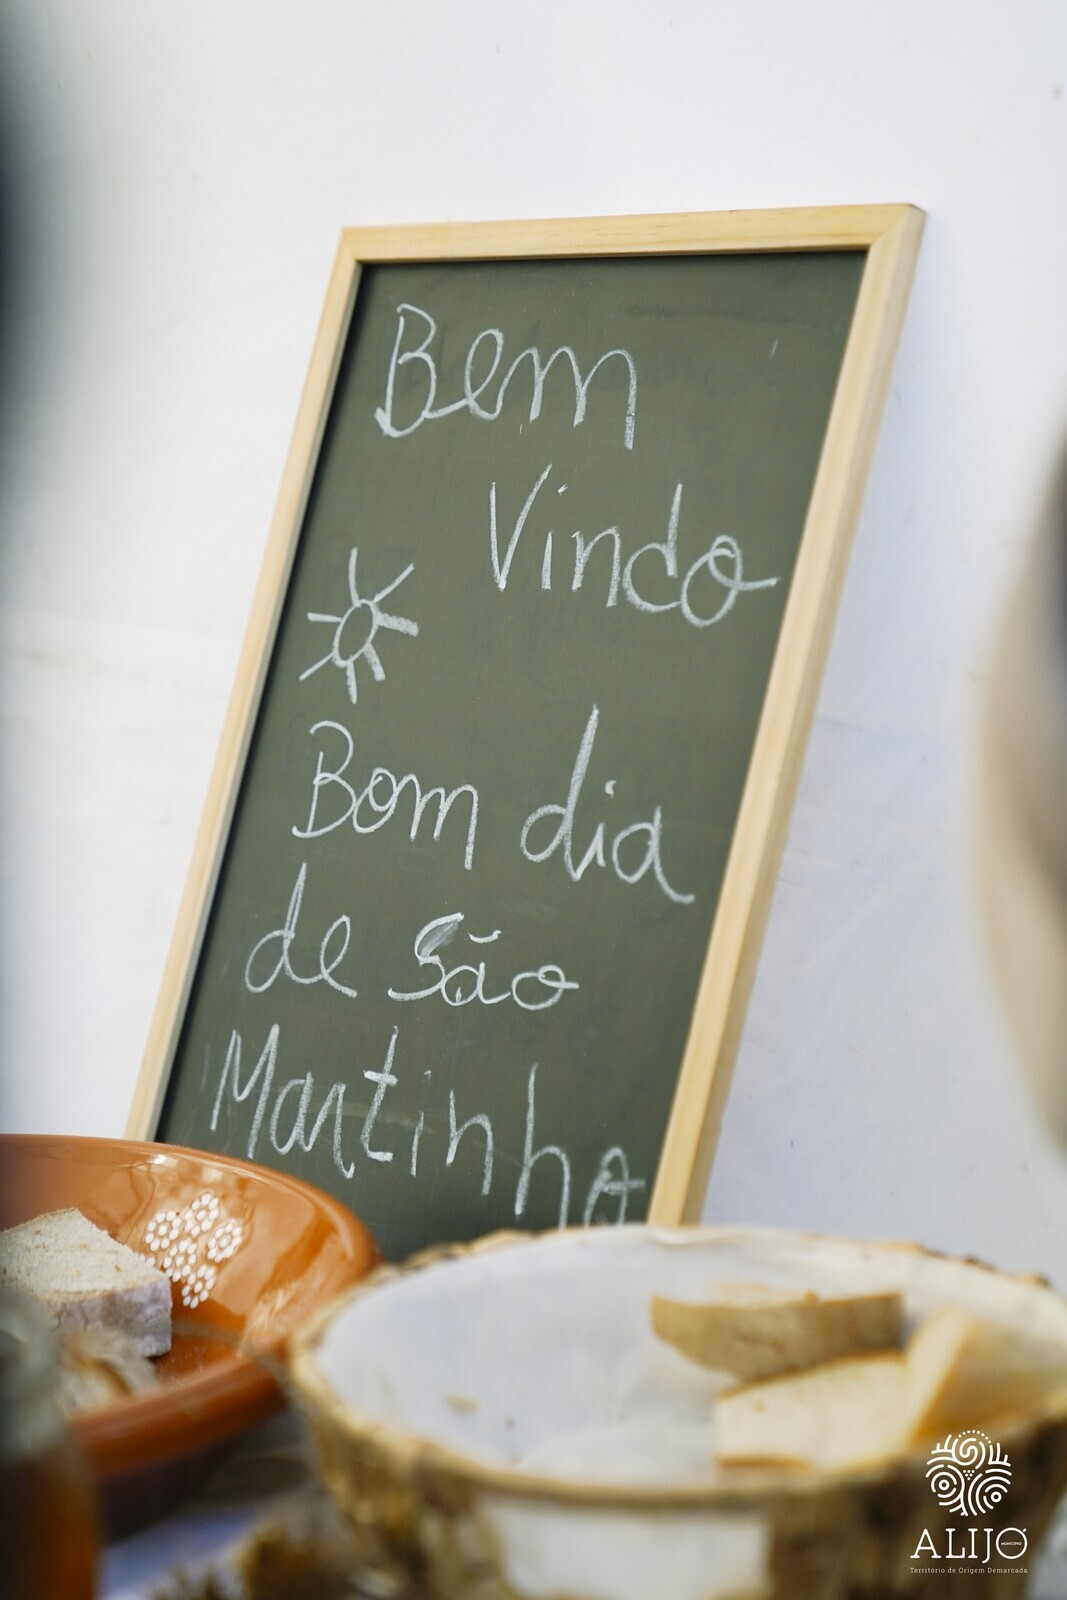 Bem
Vindo
Bom dia
de São
Martinho
ALIJÓ
MUNICÍPIO
Território de Origem Demarcada